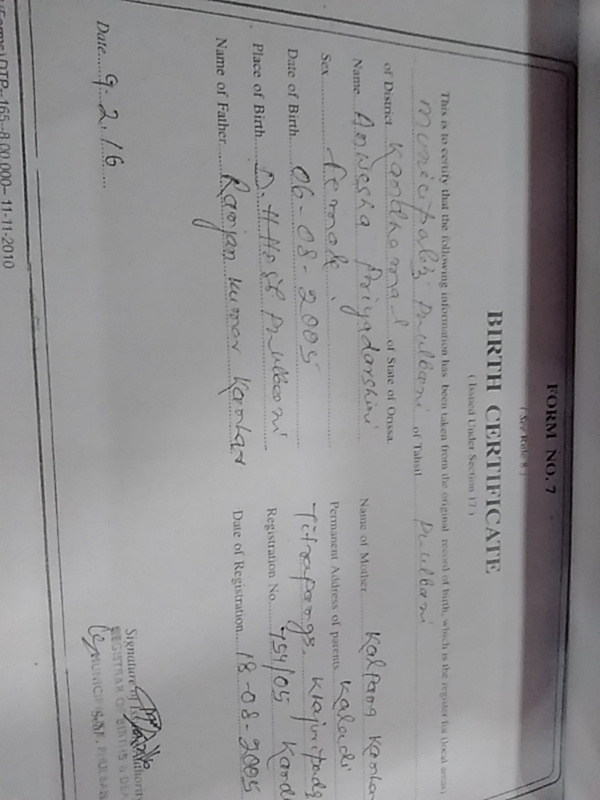 FORM NO. 7
( See Rule 8 )
BIRTH CERTIFICATE
( Issued Under Section 17 )
This is to certify that the following information has been taken from the original record of birth, which is the register for (local area)
Municipality Phulbani of Tahsil Phulbani
of District Kandhamal of State of Orissa.
Name Anwesha Priyadarshini
Sex female.
Date of Birth 06-08-2005
Place of Birth D.H.H. Phulbani
Name of Father Ranjan Kumar Kanhar
Name of Mother Kalpana Kanhar
Permanent Address of parents Kaladi
Registration No. 754/05
Date of Registration 18-08-2005
Date 9.2.16
Signature of Authority
REGISTRAR OF BIRTHS & DEA
MUNICIPALITY, PHULBANI
Forms) DTP-165-8,00,000- 11-11-2010